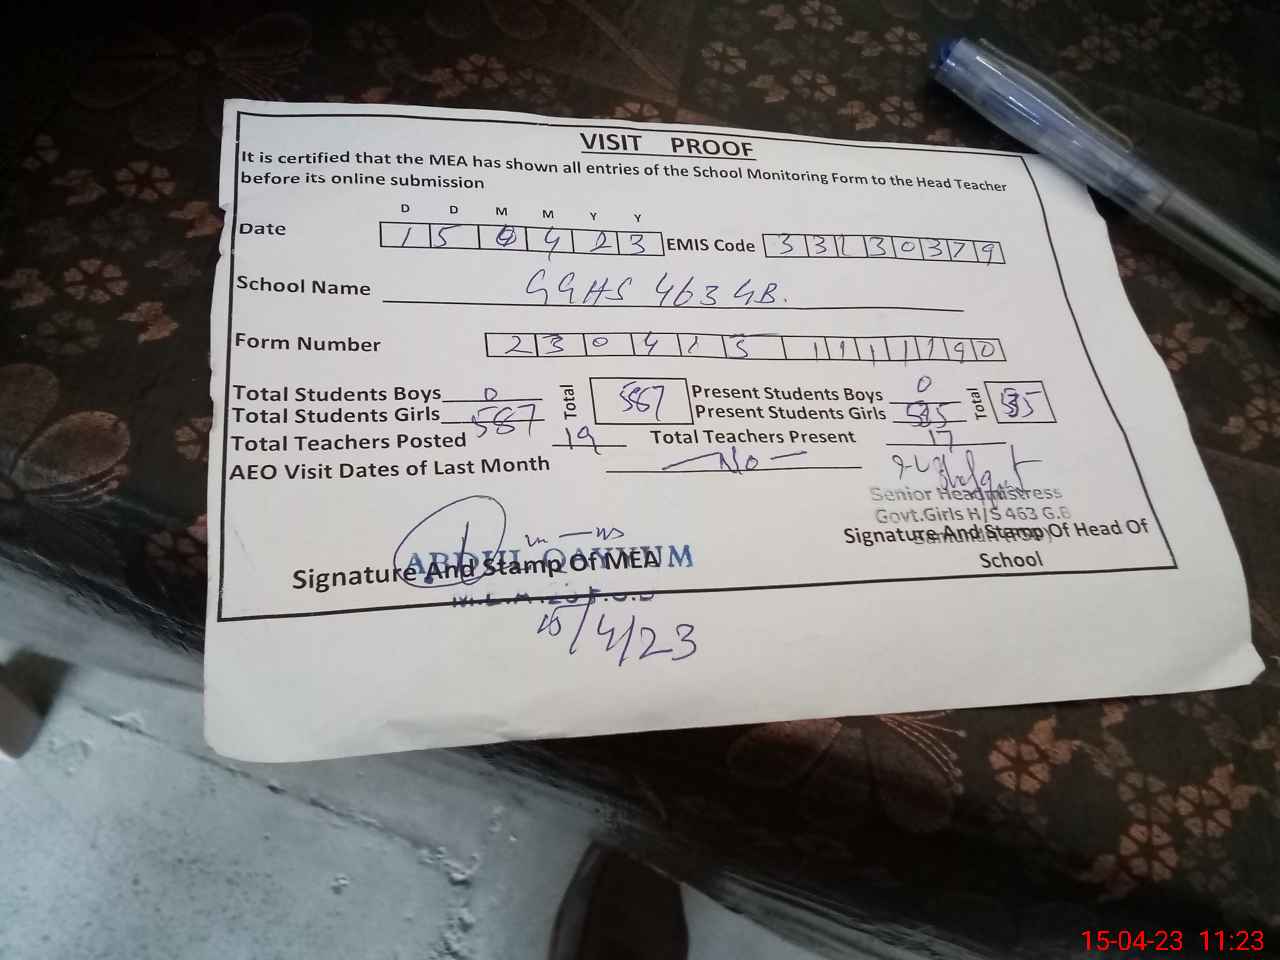 VISIT PROOF
It is certified that the MEA has shown all entries of the School Monitoring Form to the Head Teacher
before its online submission
D D M M Y Y
Date 1 5 0 4 2 3 EMIS Code 3 3 1 3 0 3 7 9
School Name GGHS 463 GB.
Form Number 2 3 0 4 1 5 1 1 1 1 1 9 0
Total Students Boys 0 Total 587 Present Students Boys 0 Total
Total Students Girls 587 Present Students Girls
Total Teachers Posted 19 Total Teachers Present 17
AEO Visit Dates of Last Month No
Senior Headmistress
Govt.Girls H/S 463 G.B
ABDUL QAYYUM
Signature And Stamp Of MEA
Signature And Stamp Of Head Of
School
15/4/23
15-04-23 11:23